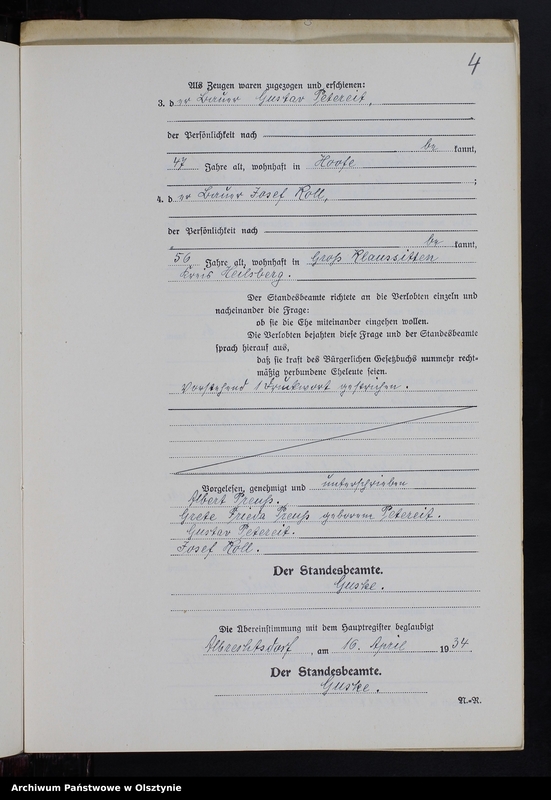 4
Als Zeugen waren zugezogen und erschienen:
3. der Bauer Gustav Petereit,
der Persönlichkeit nach
be kannt,
47 Jahre alt, wohnhaft in Hoofe
;
4. der Bauer Josef Koll,
der Persönlichkeit nach
be kannt,
56 Jahre alt, wohnhaft in Groß Klaussitten
Kreis Heilsberg.
Der Standesbeamte richtete an die Verlobten einzeln und
nacheinander die Frage:
ob sie die Ehe miteinander eingehen wollen.
Die Verlobten bejahten diese Frage und der Standesbeamte
sprach hierauf aus,
daß sie kraft des Bürgerlichen Gesetzbuchs nunmehr recht-
mäßig verbundene Eheleute seien.
Vorstehend 1 Druckwort gestrichen.
Vorgelesen, genehmigt und unterschrieben
Albert Preuß.
Grete Frieda Preuß geborene Petereit.
Gustav Petereit.
Josef Koll.
Der Standesbeamte.
Guske.
Die Übereinstimmung mit dem Hauptregister beglaubigt
Albrechtsdorf, am 16. April 1934
Der Standesbeamte.
Guske.
N.-R.
Archiwum Państwowe w Olsztynie